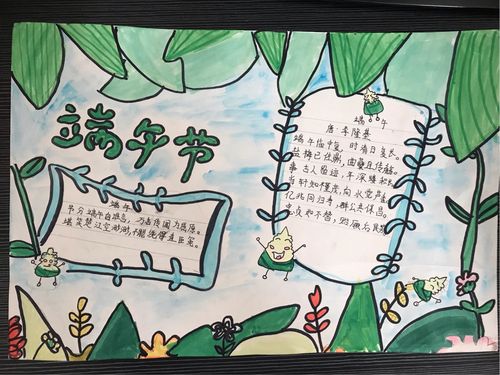 端午节
端午
节分端午自谁言，万古传闻为屈原。
堪笑楚江空渺渺，不能洗得直臣冤。
端午
唐·李隆基
端午临中夏，时清日复长。
盐梅已佐鼎，曲糵且传觞。
事古人留迹，年深缕积长。
当轩知槿茂，向水觉芦香。
亿兆同归寿，群公共保昌。
忠贞如不替，贻厥后昆芳。